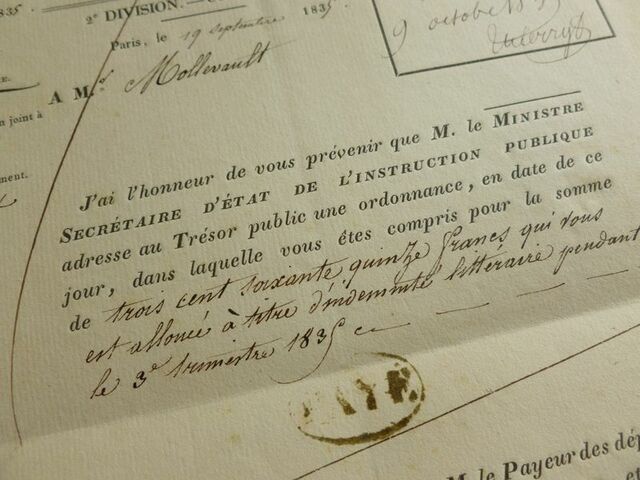 1835.
2e DIVISION.
Paris, le 19 septembre 1835
9 octobre 1835
E.
A M.r Mollevault
n joint à
ment.
J'ai l'honneur de vous prévenir que M. le MINISTRE
SECRÉTAIRE D'ÉTAT DE L'INSTRUCTION PUBLIQUE
adresse au Trésor public une ordonnance, en date de ce
jour, dans laquelle vous êtes compris pour la somme
de trois cent soixante quinze francs qui vous
est allouée à titre d'indemnité littéraire pendant
le 3e trimestre 1835
PAYÉ
M. le Payeur des dép
et